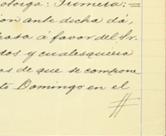 otorga: Primera: =
ion ante dicha dá,
rasa á favor del Sr.
dos y cualesquiera
as de que se compone
to Domingo en el